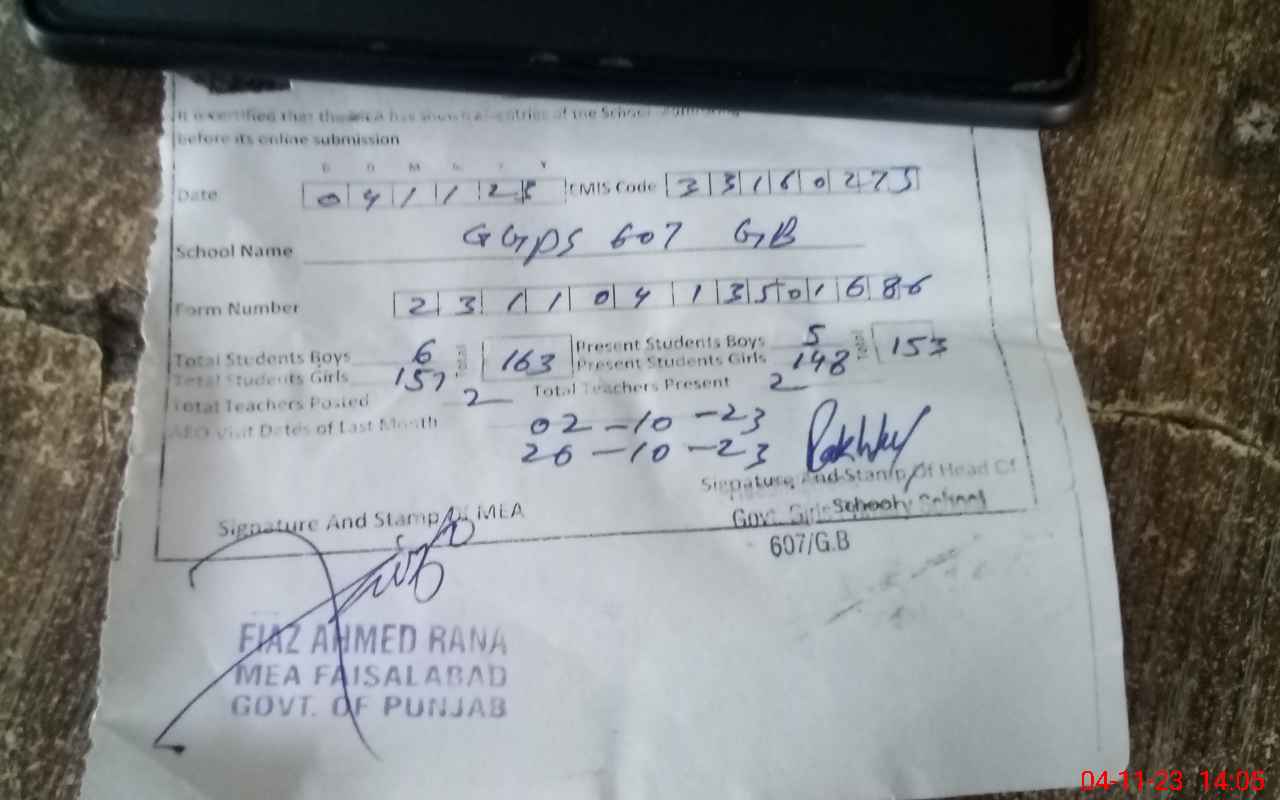 It is certified that the MEA has shown all entries of the School
before its online submission
D D M M Y Y
Date 0 4 1 1 2 3 EMIS Code 3 3 1 6 0 2 7 5
School Name GGPS 607 GB
Form Number 2 3 1 1 0 4 1 3 5 0 1 6 8 6
Total Students Boys 6 Total 163 Present Students Boys 5 Total 153
Total Students Girls 157 Present Students Girls 148
Total Teachers Posted 2 Total Teachers Present 2
AEO Visit Dates of Last Month 02-10-23
26-10-23
Signature And Stamp Of Head Of
School
Govt. Girls School
607/G.B
Signature And Stamp Of MEA
FIAZ AHMED RANA
MEA FAISALABAD
GOVT. OF PUNJAB
04-11-23 14:05